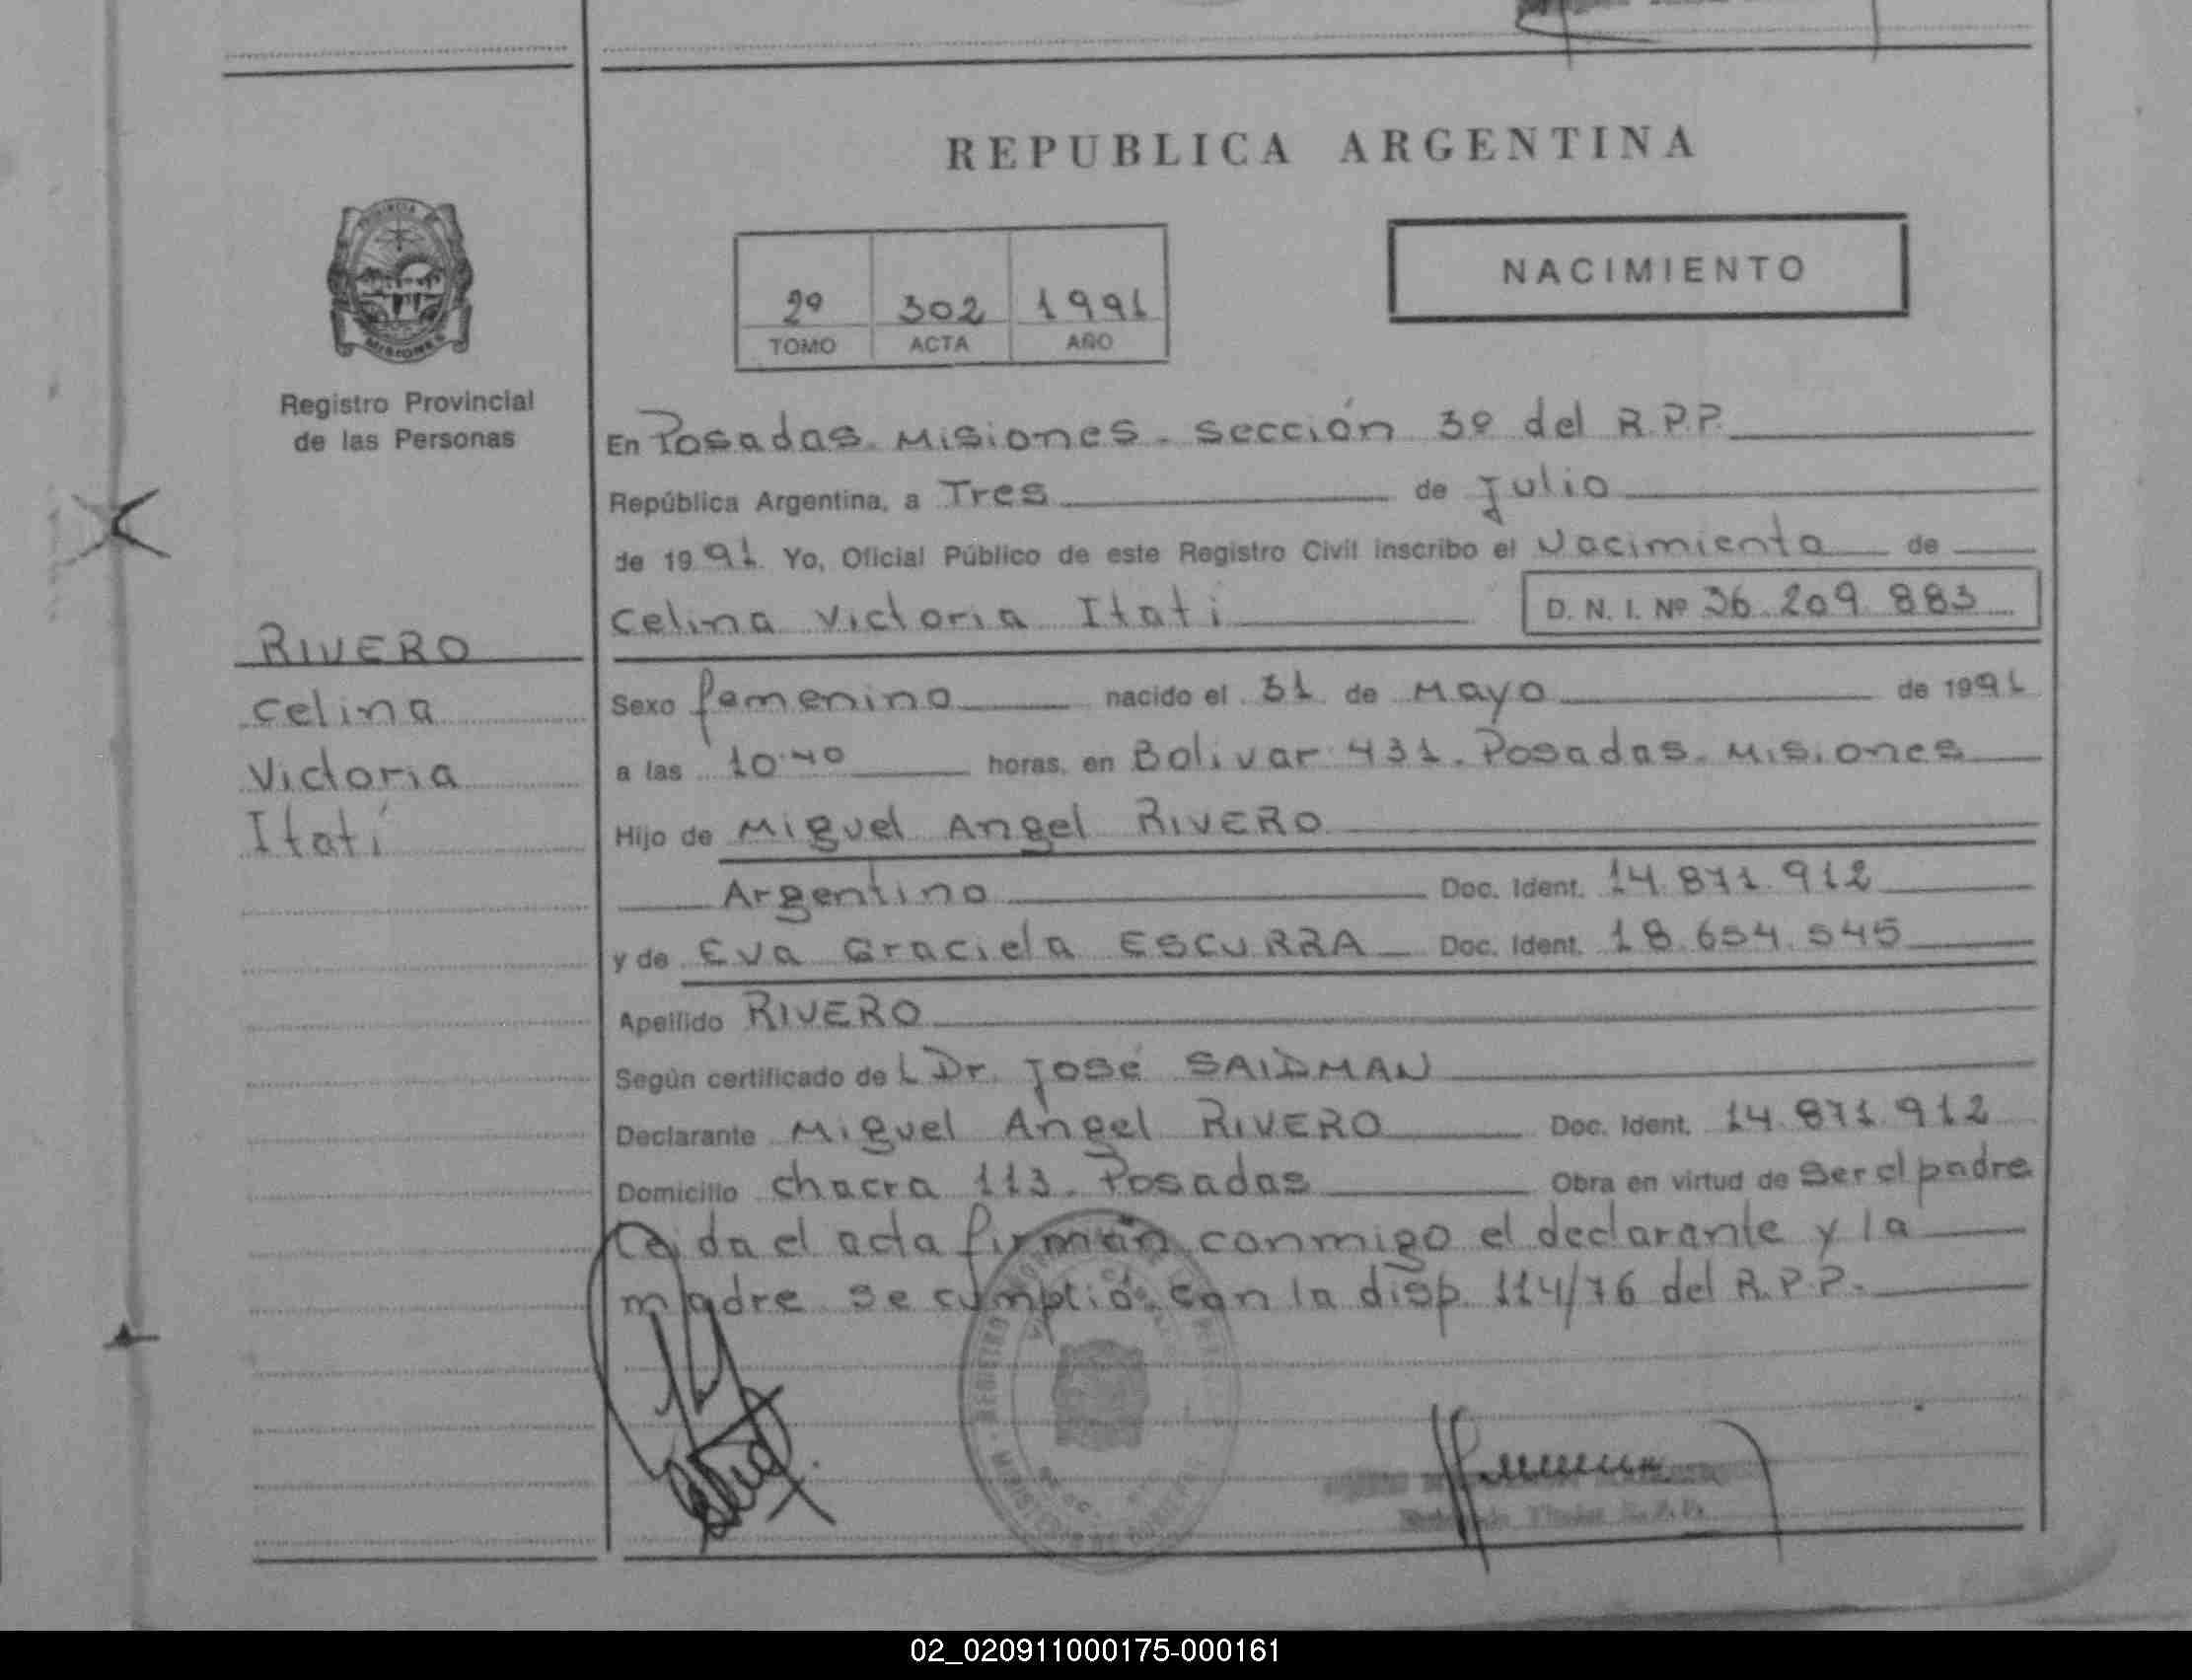 REPUBLICA ARGENTINA
NACIMIENTO
2º 302 1991
TOMO ACTA AÑO
PROVINCIA
MISIONES
Registro Provincial
de las Personas
RIVERO
Celina
Victoria
Itatí
En Posadas. Misiones. sección 3º del R.P.P.
República Argentina, a Tres de Julio
de 1991 Yo, Oficial Público de este Registro Civil inscribo el Nacimiento de
Celina Victoria Itatí D. N. I. Nº 36.209.883
Sexo femenino nacido el 31 de Mayo de 1991
a las 10.40 horas, en Bolivar 431. Posadas. Misiones
Hijo de Miguel Angel RIVERO
Argentino Doc. Ident. 14.871.912
y de Eva Graciela ESCURRA Doc. Ident. 18.654.545
Apellido RIVERO
Según certificado del Dr. José SAIDMAN
Declarante Miguel Angel RIVERO Doc. Ident. 14.871.912
Domicilio chacra 113. Posadas Obra en virtud de ser el padre
Leida el acta firman conmigo el declarante y la
madre se cumplió con la disp. 114/76 del R.P.P.
02_020911000175-000161